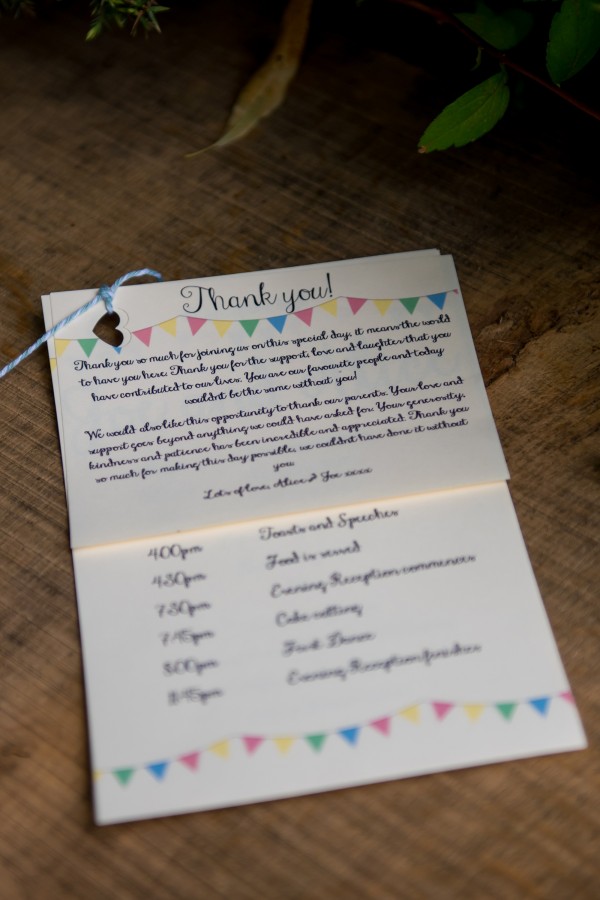 Thank you!
Thank you so much for joining us on this special day, it means the world
to have you here. Thank you for the support, love and laughter that you
have contributed to our lives. You are our favourite people and today
wouldnt be the same without you!
We would also like this opportunity to thank our parents. Your love and
support goes beyond anything we could have asked for. Your generosity,
kindness and patience has been incredible and appreciated. Thank you
so much for making this day possible, we couldnt have done it without
you
Lots of love, Alice & Joe xxxx
4.00pm Toasts and Speeches
4.30pm Food is served
7.30pm Evening Reception commences
7.45pm Cake cutting
8.00pm First Dance
Evening Reception finishes